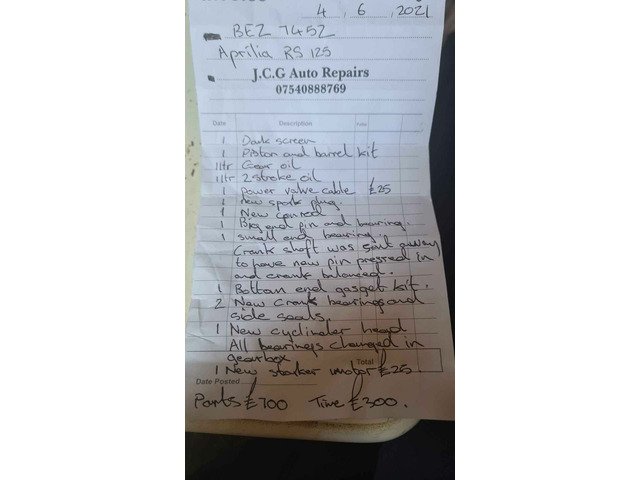 4 , 6 , 2021
BEZ 7452
Aprilia RS 125
J.C.G Auto Repairs
07540888769
Date Description
1 Dark screen
1 Piston and barrel kit
1ltr Gear oil
1ltr 2 stroke oil
1 Power valve cable £25
1 New spark plug.
1 New conrod
1 Big end pin and bearing.
1 small end bearing.
Crank shaft was sent away
to have new pin pressed in
and crank balanced.
1 Bottom end gasget kit.
2 New Crank bearings and
side seals.
1 New cyclinder head
All bearings changed in
gearbox
Total
1 New starter motor £25
Date Posted
Parts £700 Time £300.